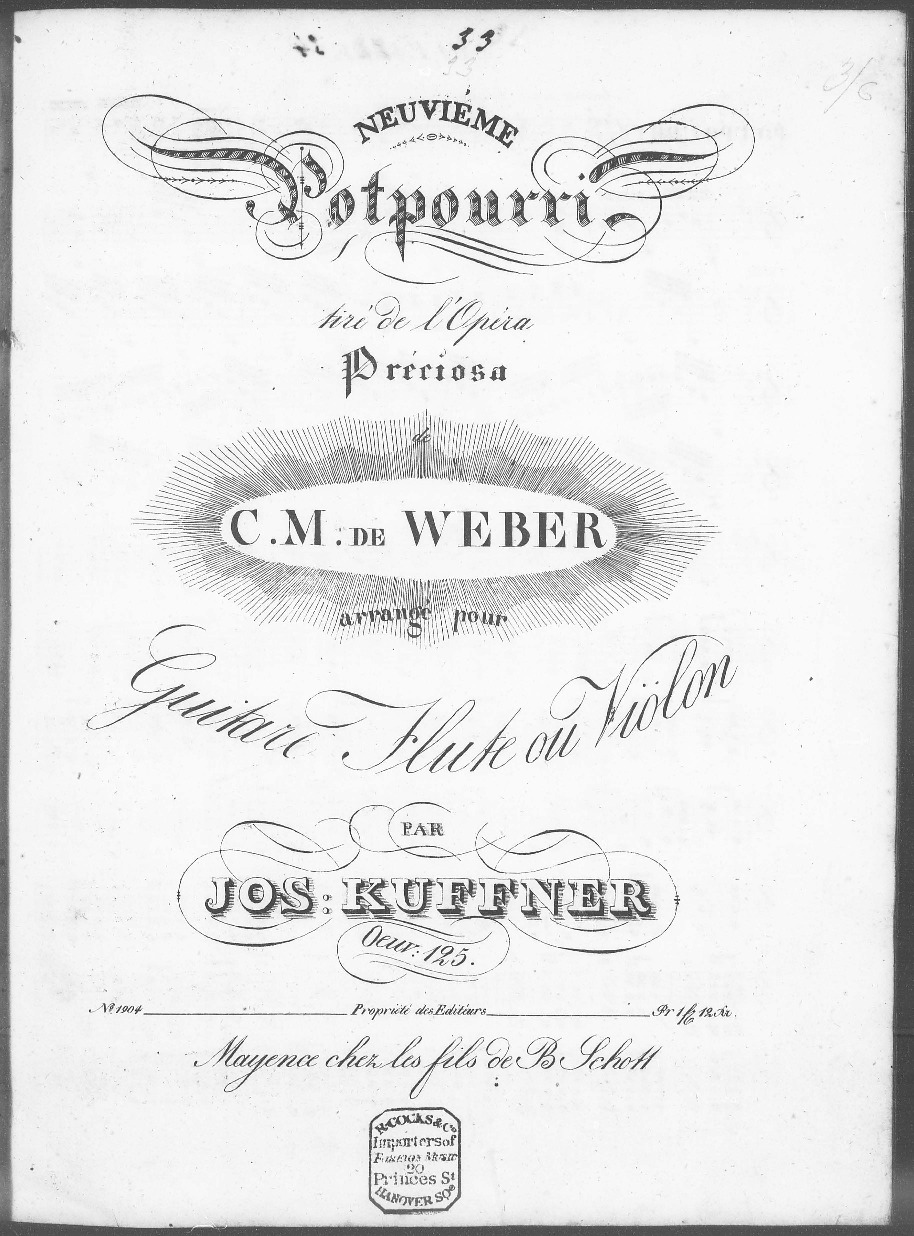 33
33
3/6
NEUVIÉME
Potpourri
tiré de l'Opéra
Préciosa
de
C. M. DE WEBER
arrangé pour
Guitare Flute ou Violon
PAR
JOS: KUFFNER
Oeuv: 125.
No. 1904 Propriété des Editeurs Pr 1f 12 Xr.
Mayence chez les fils de B. Schott
R. COCKS & Co.
Importers of
FOREIGN MUSIC
20
Princes St
HANOVER SQre